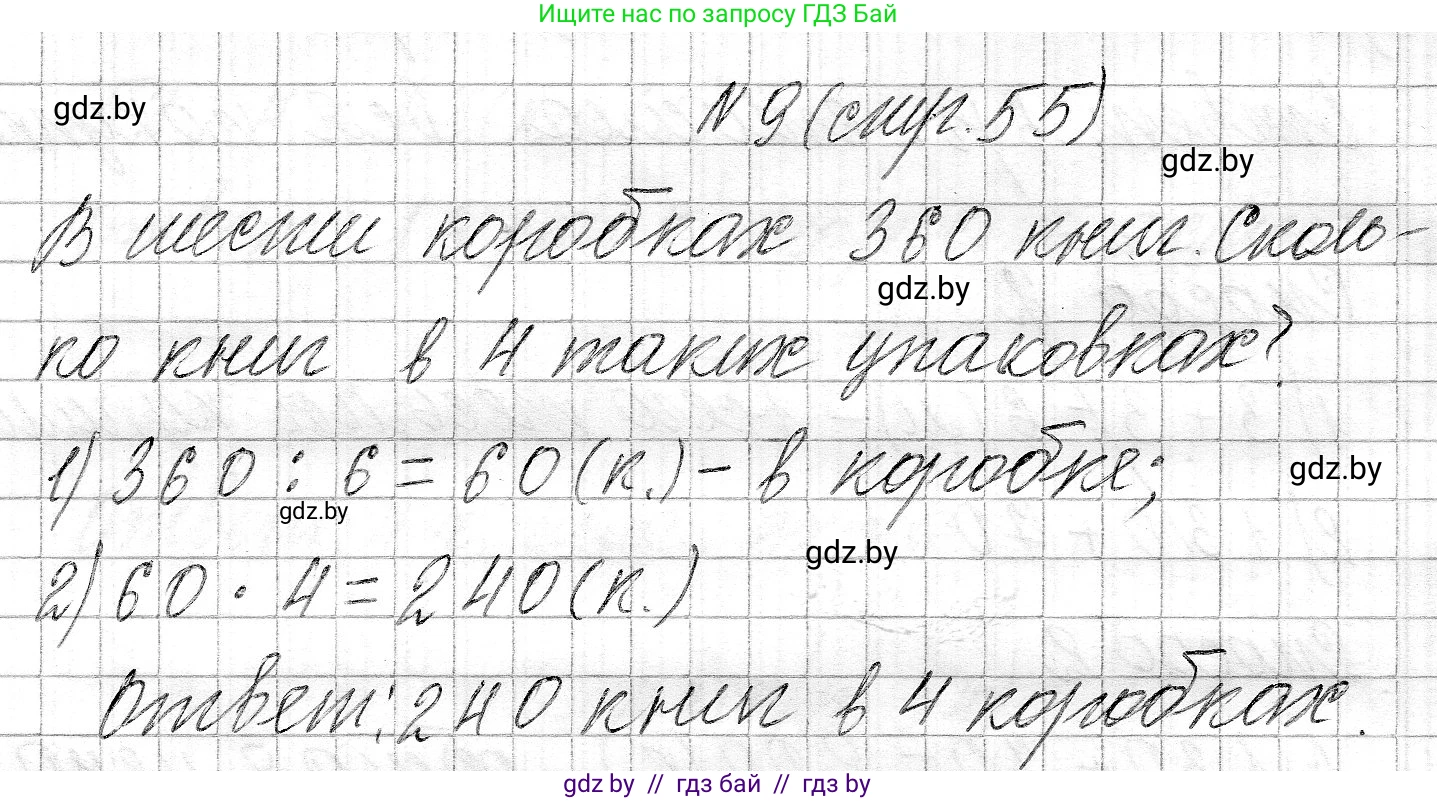 Ищите нас по запросу ГДЗ Бай
gdz.by
N 9 (стр. 55)
gdz.by
В шести коробках 360 книг. Сколь-
gdz.by
ко книг в 4 таких упаковках?
1) 360 : 6 = 60 (к.) - в коробке;
gdz.by
gdz.by
2) 60 · 4 = 240 (к.)
gdz.by
Ответ: 240 книг в 4 коробках.
gdz.by // гдз бай // гдз by